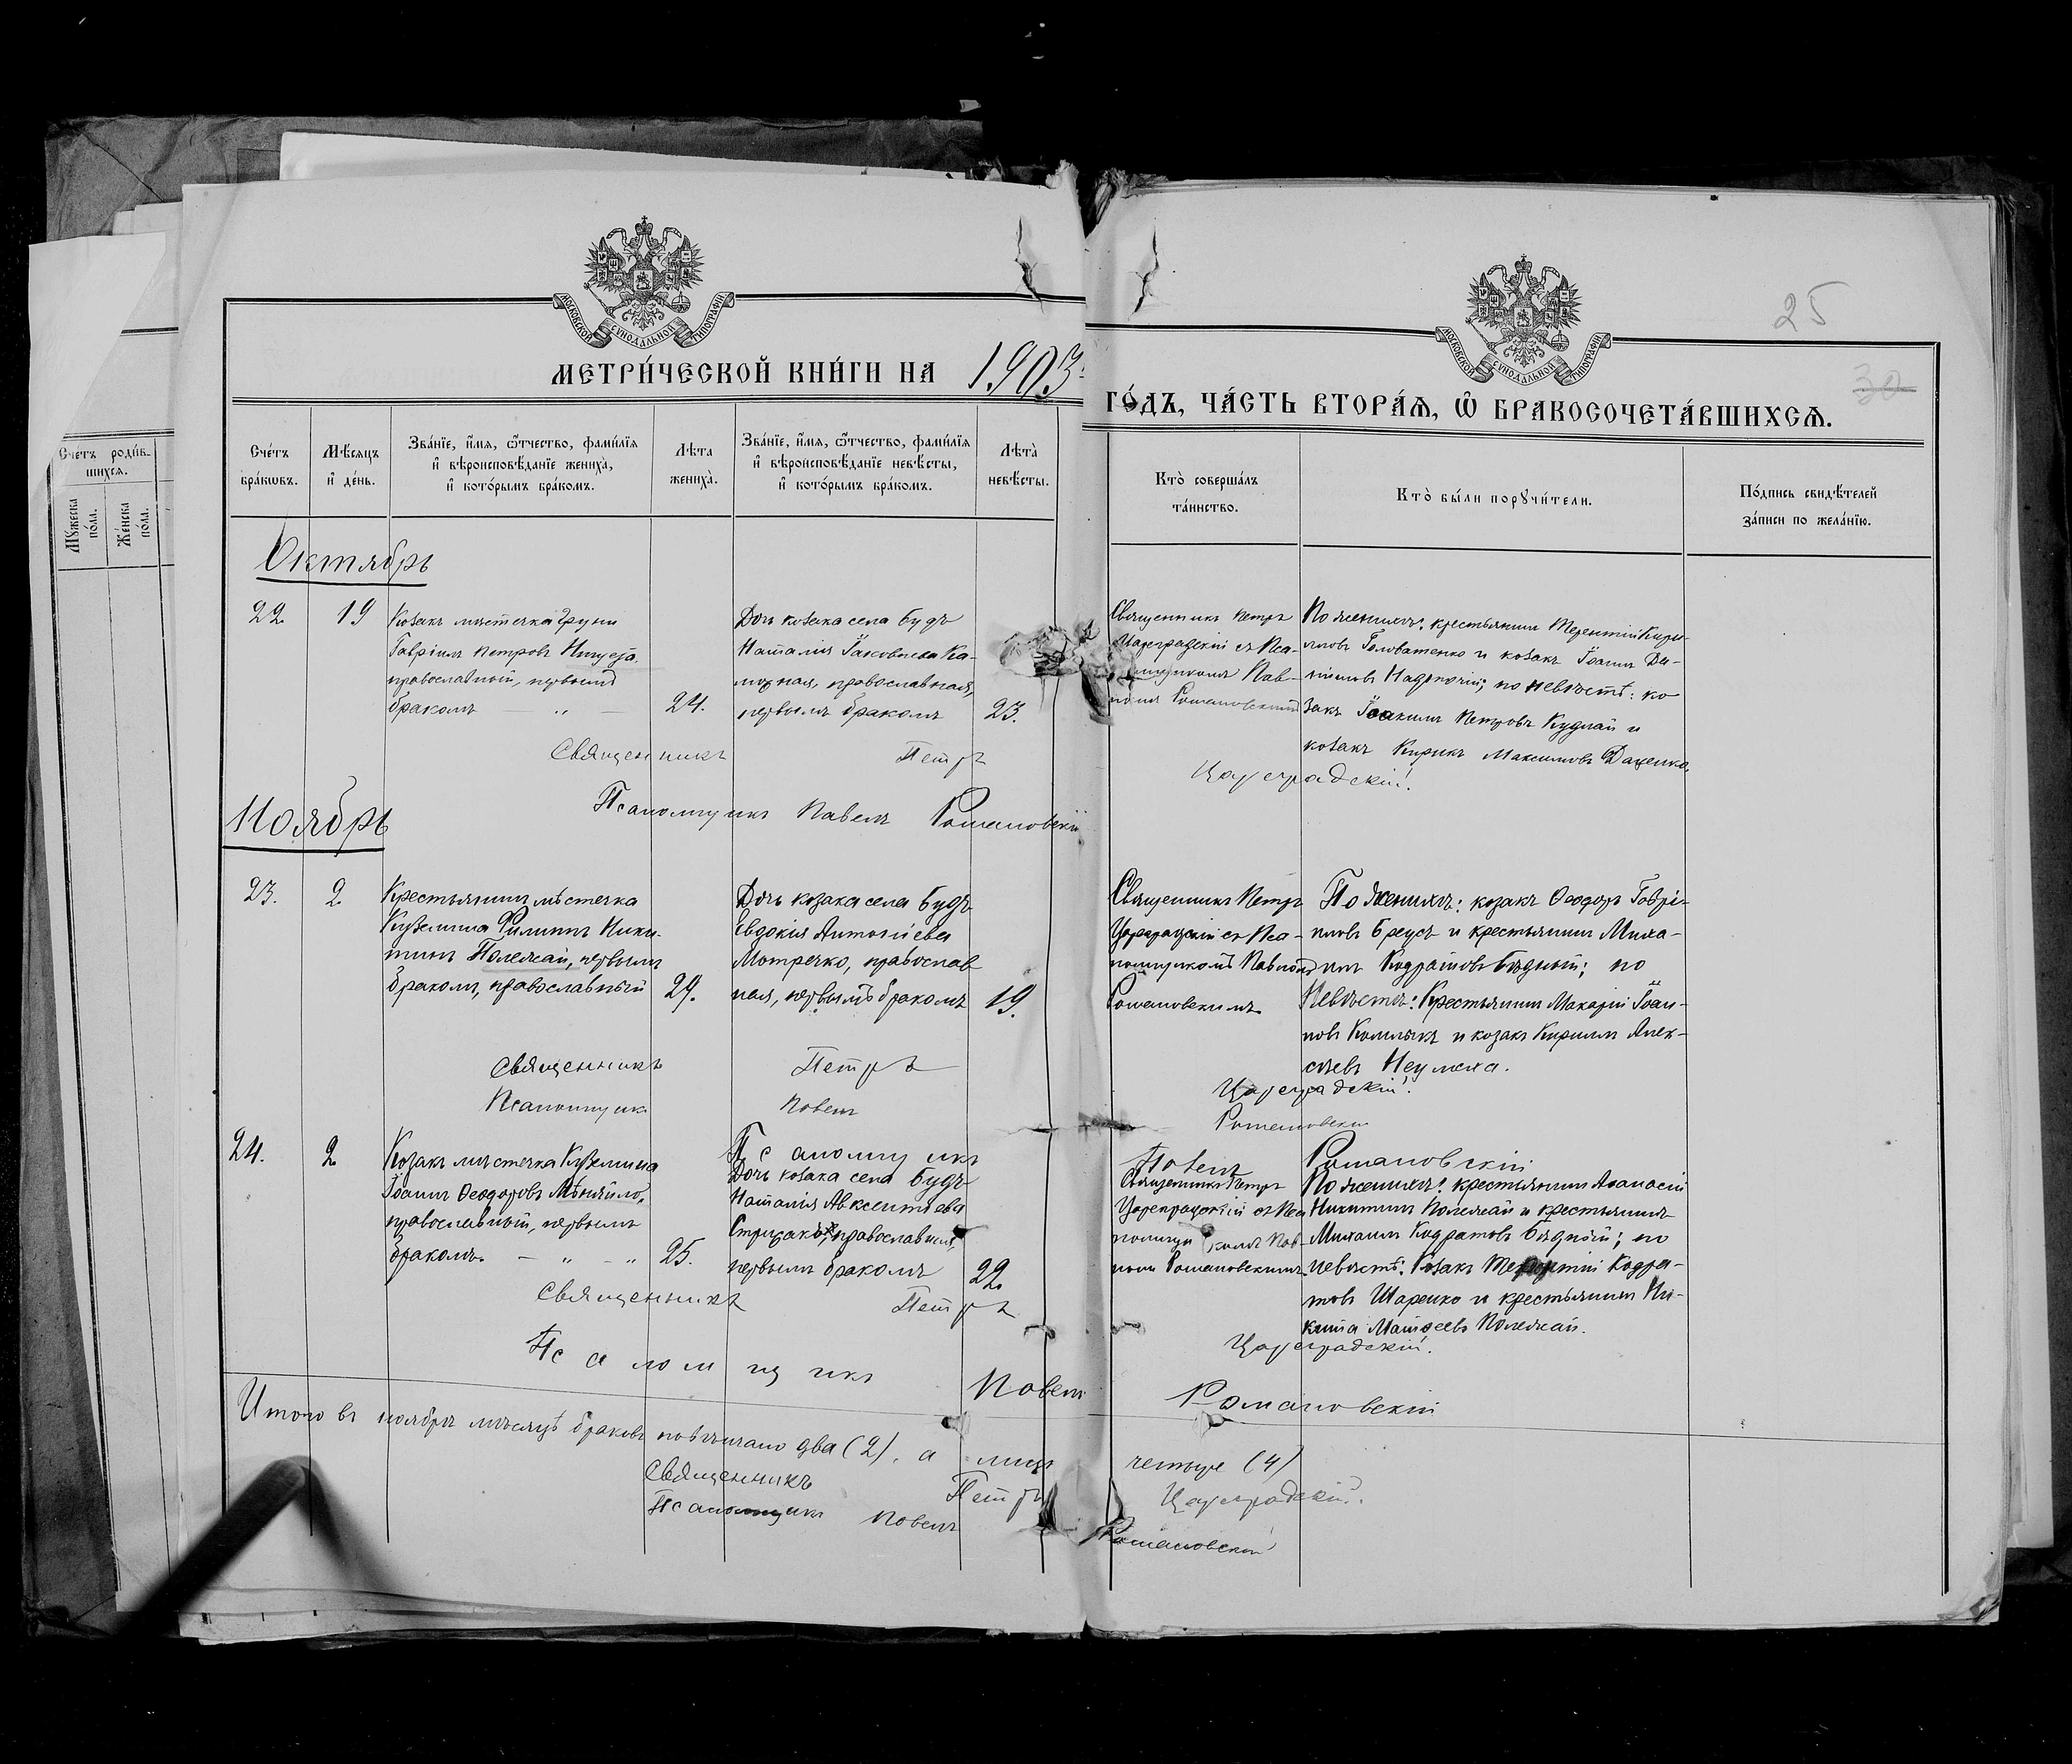 25
30
МОСКОВСКОЙ СУНОДАЛЬНОЙ ТИПОГРАФІИ
МОСКОВСКОЙ СУНОДАЛЬНОЙ ТИПОГРАФІИ
МЕТРИ́ЧЕСКОЙ КНИ́ГИ НА 1903
ГО́ДЪ, ЧА́СТЬ ВТОРА́Я, Ѡ БРАКОСОЧЕТА́ВШИХСЯ.
Сче́тъ роди́в-
шихся.
Му́жеска
по́ла.
Же́нска
по́ла.
Сче́тъ
бра́ковъ.
Мѣ́сяцъ
и де́нь.
Зва́нїе, и́мя, ѻ́тчество, фами́лїя
и вѣроисповѣ́данїе жениха̀,
и кото́рымъ бра́комъ.
Лѣ́та
жениха̀.
Зва́нїе, и́мя, ѻ́тчество, фами́лїя
и вѣроисповѣ́данїе невѣ́сты,
и кото́рымъ бра́комъ.
Лѣта̀
невѣ́сты.
Кто̀ соверша́лъ
та́инство.
Кто̀ бы́ли порꙋчи́тели.
По́дпись свидѣ́телей
за́писи по жела́нїю.
Октябрь
22
19
Козакъ мѣстечка Груни
Гавріилъ Петровъ
православный, первымъ
бракомъ — „ —
24.
Дочь козака села Будъ
Наталія Іаковлева Ка-
православная,
первымъ бракомъ
23.
Священникъ Петръ
Цареградскій съ Пса-
Пав-
ломъ Романовскимъ
По женихѣ: крестьянинъ Терентій Кири-
лловъ Головатенко и козакъ Іоаннъ Да-
ніиловъ Надточій; по невѣстѣ: ко
закъ Іоакимъ Петровъ Кудлай и
козакъ Кирикъ Максимовъ Даценко.
Священникъ Петръ Цареградскій.
Псаломщикъ Павелъ Романовскій
Ноябрь
23.
2
Крестьянинъ мѣстечка
Куземина Филиппъ Ники-
тинъ Полежай, первымъ
бракомъ, православный
24.
Дочь козака села Будъ
Евдокія Антоніева
Мотречко, православ
ная, первымъ бракомъ
19.
Священникъ Петръ
Цареградскій съ Пса-
ломщикомъ Павломъ
Романовскимъ.
По женихѣ: козакъ Ѳеодоръ Гаврі-
иловъ Бреусъ и крестьянинъ Миха-
илъ Кодратовъ Бѣдный; по
Невѣстѣ: Крестьянинъ Макарій Іоан-
новъ и козакъ Кириллъ Алек-
сѣевъ
Священникъ Петръ Цареградскій.
Псаломщикъ Павелъ Романовскій
Псаломщикъ Павелъ Романовскій
24.
2
Козакъ мѣстечка Куземина
Іоаннъ Ѳеодоровъ Мѣняйло,
православный, первымъ
бракомъ. — „ — „
25.
Дочь козака села Будъ
Наталія Авксентіева
православная,
первымъ бракомъ
22
Священникъ Петръ
Цареградскій съ Пса
ломщикомъ Пав-
ломъ Романовскимъ.
По женихѣ: крестьянинъ Аѳанасій
Никитинъ Полежай и крестьянинъ
Михаилъ Кодратовъ Бѣдный; по
невѣстѣ: Козакъ Терентій Кодра-
товъ Шаренко и крестьянинъ Ни-
кита Матѳеевъ Полежай.
Священникъ Петръ Цареградскій.
Псаломщикъ Павелъ Романовскій
Итого въ ноябрѣ мѣсяцѣ браковъ повѣнчано два (2), а лицъ четыре (4)
Священникъ Петръ Цареградскій.
Псаломщикъ Павелъ Романовскій